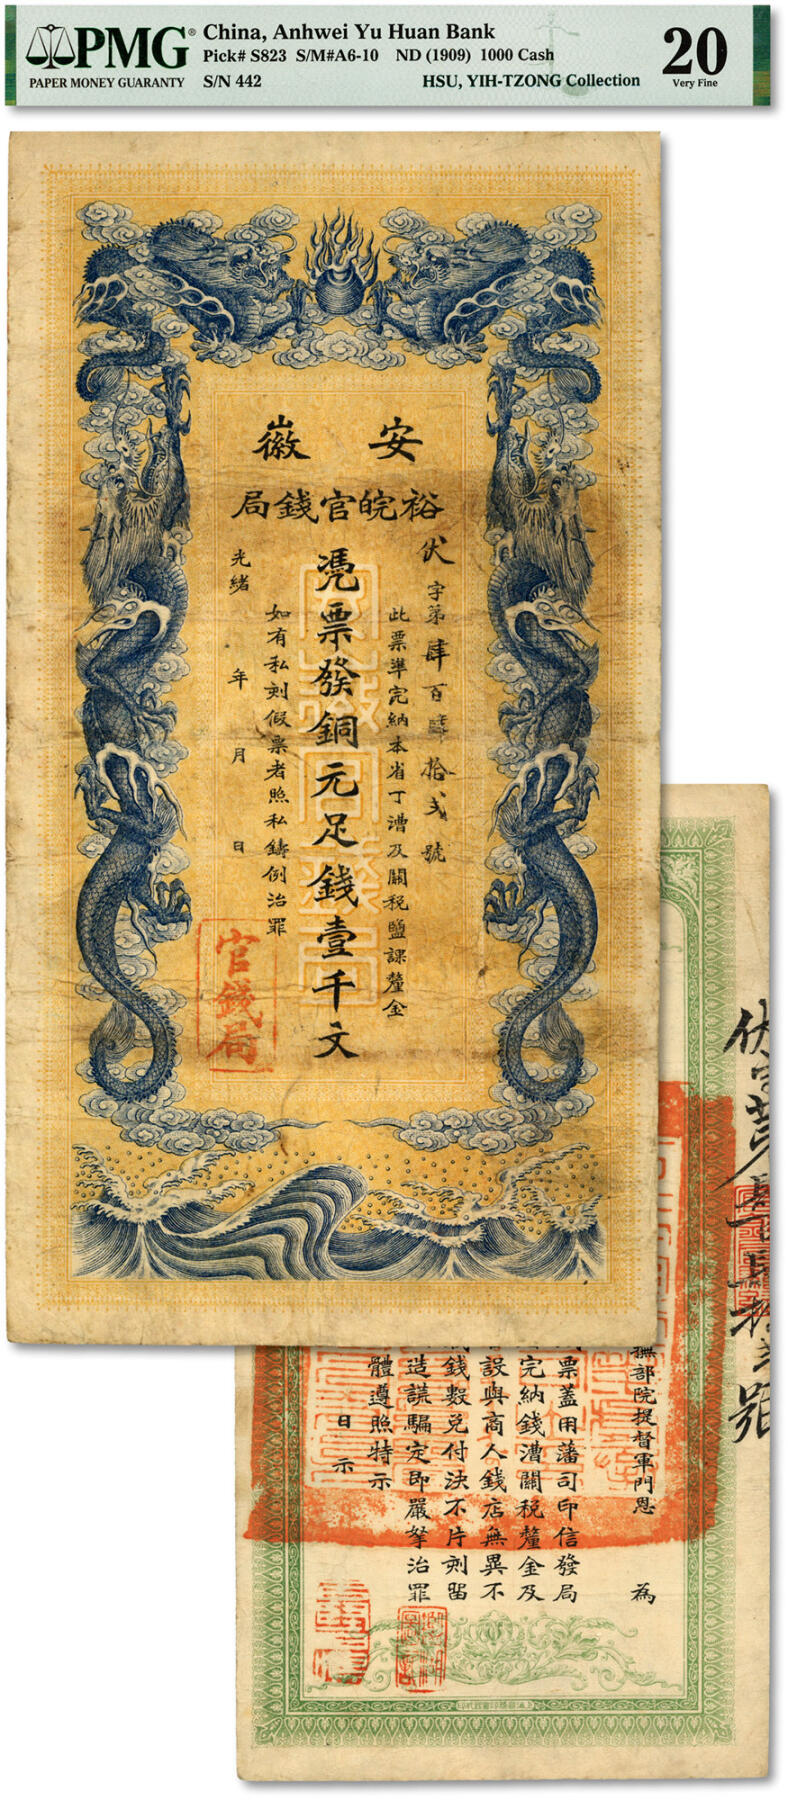 PMG®
PAPER MONEY GUARANTY
China, Anhwei Yu Huan Bank
Pick# S823 S/M#A6-10 ND (1909) 1000 Cash
S/N 442
HSU, YIH-TZONG Collection
20
Very Fine
安徽
裕皖官錢局
伏字第肆百肆拾弍號
此票準完納本省丁漕及關税鹽課釐金
憑票發銅元足錢壹千文
如有私刻假票者照私鑄例治罪
光緒 年 月 日
官錢局
撫部院提督軍門恩 為
票蓋用藩司印信發局
完納錢漕關税釐金及
設與商人錢店無異不
錢數兑付決不片刻留
造謊騙定即嚴拏治罪
體遵照特示
日示